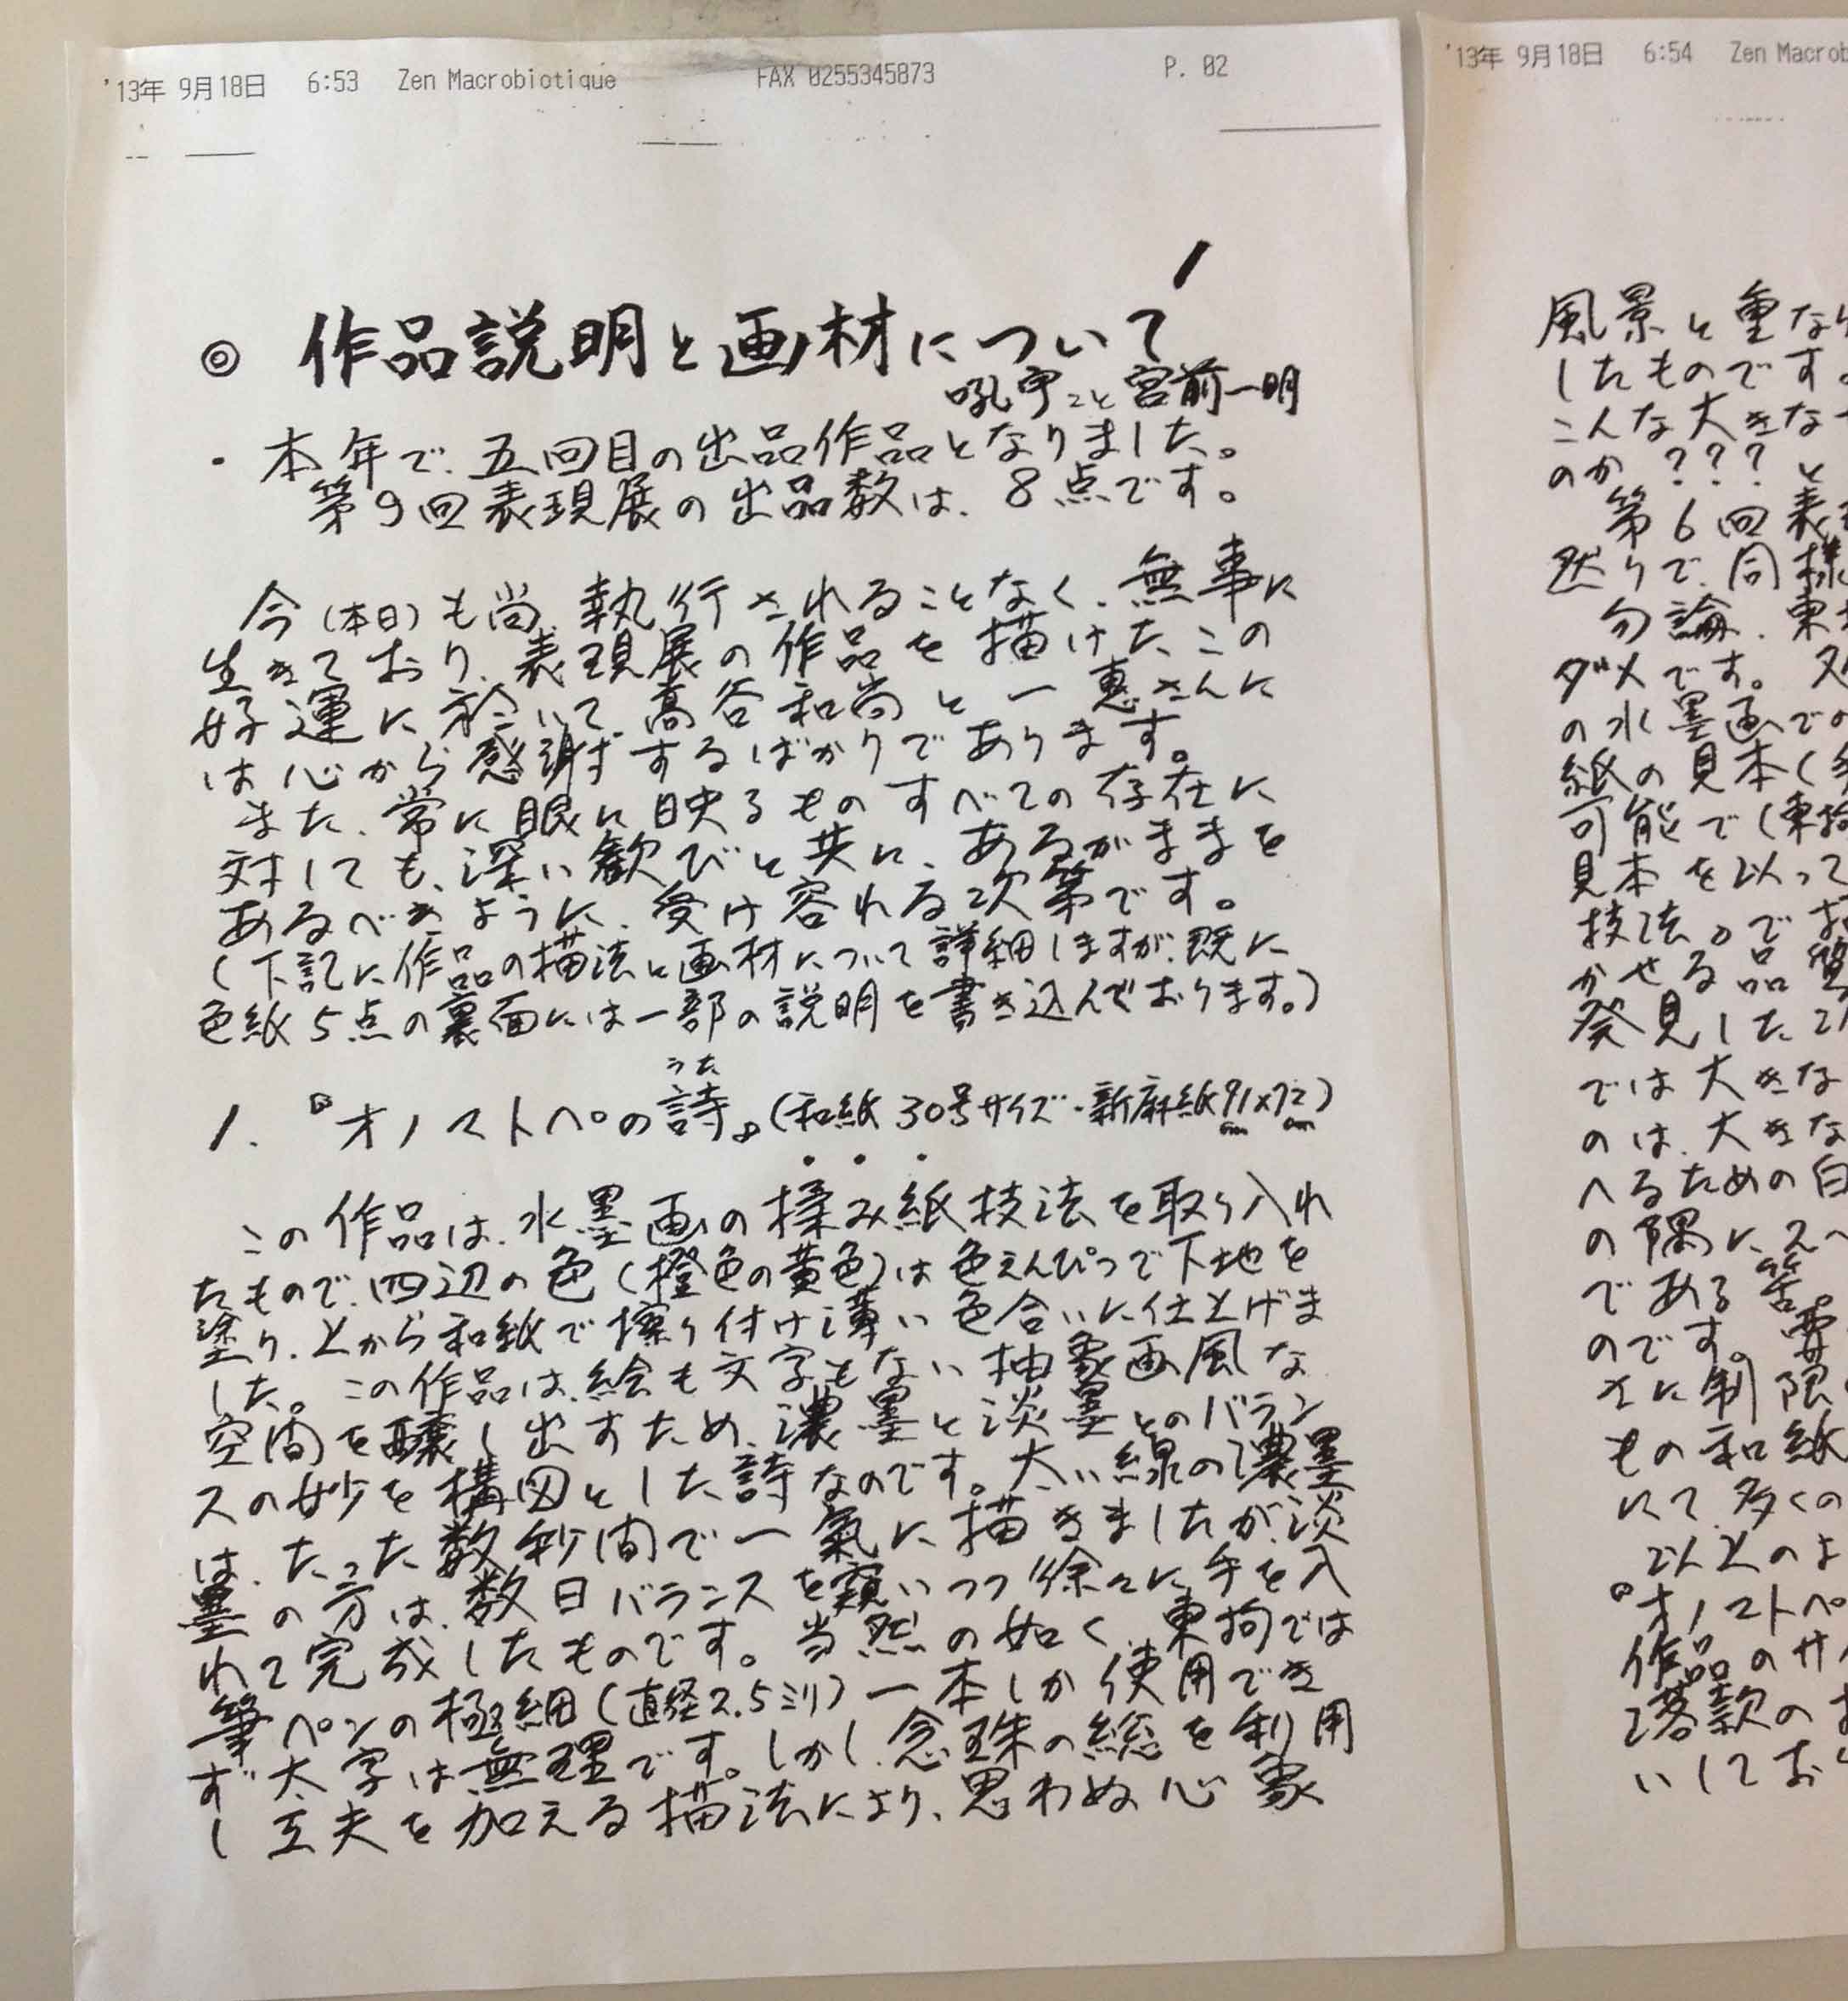 '13年 9月18日 6:53 Zen Macrobiotique FAX 0255345873 P. 02
1
◎ 作品説明と画材について
吼宇こと宮前一明
・本年で、五回目の出品作品となりました。
第9回表現展の出品数は、8点です。
今(本日)も尚、執行されることなく、無事に
生きており、表現展の作品を描けた、この
好運に於いて、高谷和尚と一恵さんに
は心から感謝するばかりであります。
また、常に眼に映るものすべての存在に
対しても、深い歓びと共に、あるがままを
あるべきように、受け容れる次第です。
(下記に作品の描法と画材について詳細しますが、既に
色紙5点の裏面には一部の説明を書き込んでおります。)
うた
1.『オノマトペの詩』(和紙30号サイズ・新麻紙91×72)
cm cm
この作品は、水墨画の揉み紙技法を取り入れ
たもので、四辺の色(橙色の黄色)は色えんぴつで下地を
塗り、上から和紙で擦り付け薄い色合いに仕上げま
した。この作品は、絵も文字もない抽象画風な
空間を醸し出すため、濃墨と淡墨とのバラン
スの妙を構図とした詩なのです。太い線の濃墨
は、たった数秒間で一氣に描きましたが、淡
墨の方は、数日バランスを窺いつつ徐々に手を入
れて完成したものです。当然の如く、東拘では
筆ペンの極細(直径2.5ミリ)一本しか使用でき
ず太字は無理です。しかし、念珠の総を利用
し工夫を加える描法により、思わぬ心象
'13年 9月18日 6:54 Zen Macrob
風景と重なり
したものです。
こんな大きな
のか???と
第6回表現
然りで、同様
勿論、東拘
ダメです。
の水墨画での
紙の見本(
可能で(東拘
見本を以って
技法』で
かせる品質
発見した
では大きな
のは、大きな
へるための白
の隅に、
である筈。
のです。要
さに制限
もの和紙
にて、多くの
以上のよ
『オノマトペ
作品のサイ
落款の
いしており